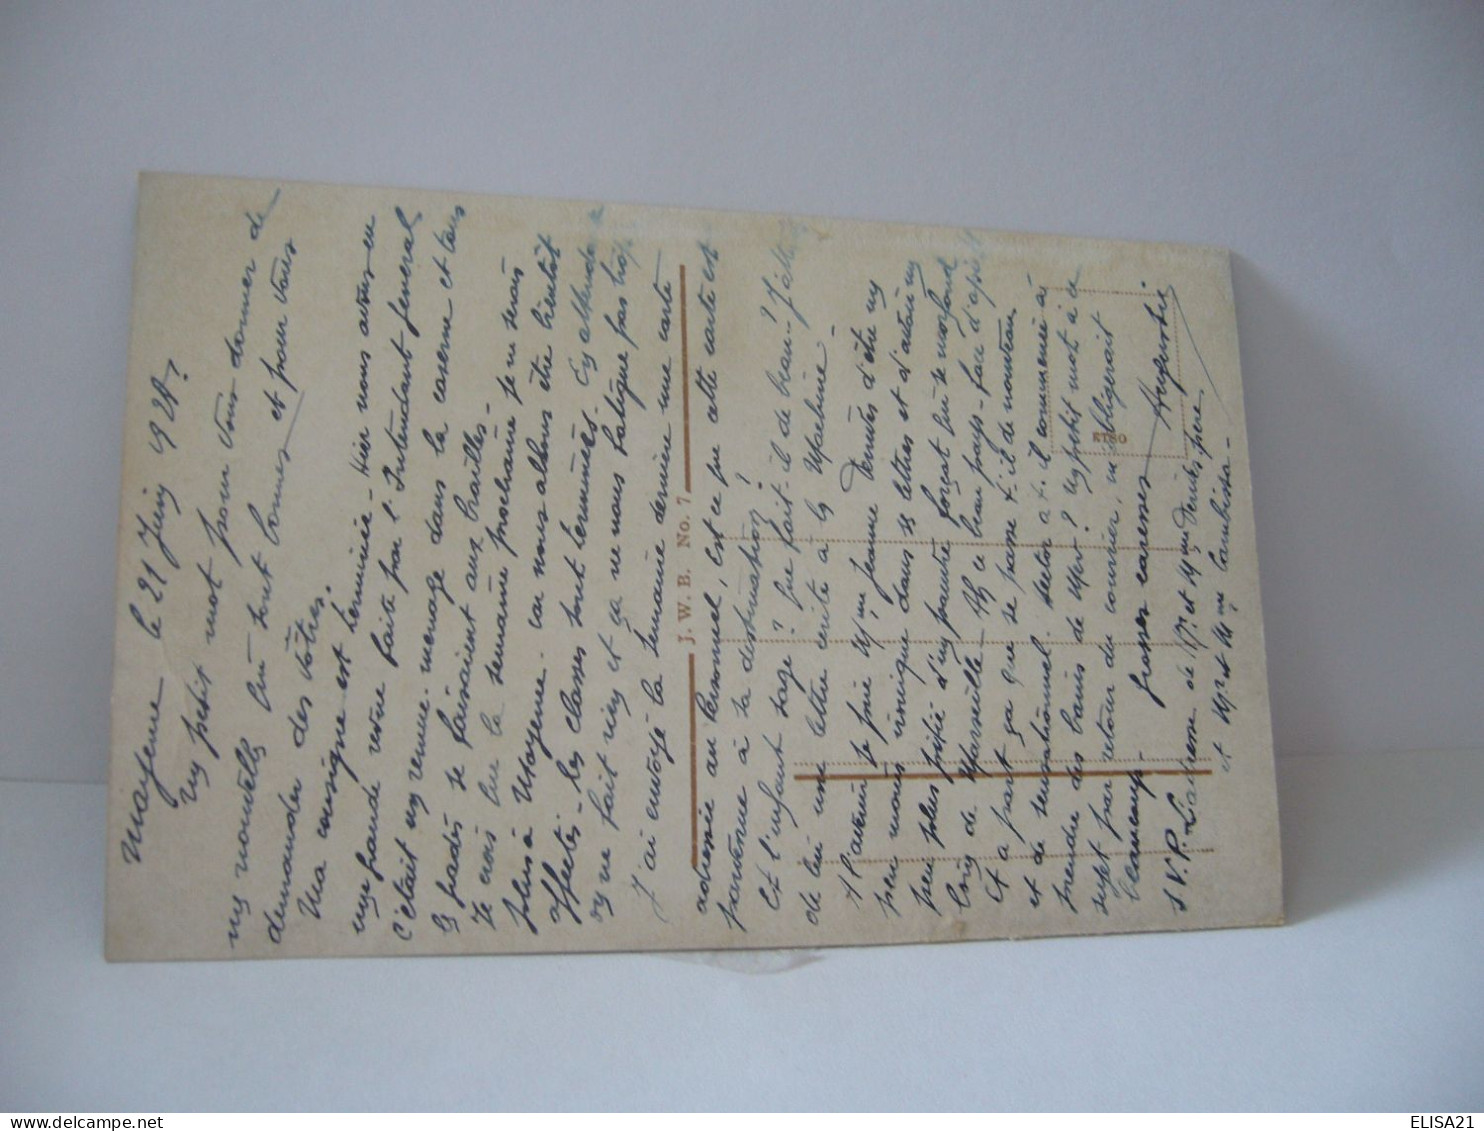 Mayenne le 21 Juin 1928.
Un petit mot pour vous donner de
mes nouvelles qui sont bonnes et pour vous
demander des vôtres.
Ma consigne est terminée - Hier nous avons eu
une grande revue faite par l'Intendant général
c'était un remue-ménage dans la caserne et tous
les gradés se faisaient aux
Je crois que la semaine prochaine je ne serais
plus à Mayenne. car nous allons être bientôt
affectés - les classes sont terminées. En attendant
on ne fait rien et ça ne nous fatigue pas trop
J'ai envoyé la semaine dernière une carte
J. W. B. No. 7
adressée au Personnel, est ce que cette carte est
parvenue à sa destination?
Et l'enfant sage? que fait-il de beau-? J'attends
de lui une lettre écrite à la Machine.
A l'avenir je prie Mme Jeanne Denuès d'être un
peu moins ironique dans ses lettres et d'avoir un
peu plus pitié d'un pauvre forçat qui se morfond
loin de Marseille - Ah ce beau pays -
Et à part ça que se passe t-il de nouveau
et de sensationnel. Hector a t-il commencé à
prendre des bains de Mer? Un petit mot à ce
sujet par retour du courrier, m'obligerait
beaucoup- grosses caresses Augustin
RTSO
S.V.P. L'adresse de Mr et Mme Denuès père
et Mr et Mme
ELISA21